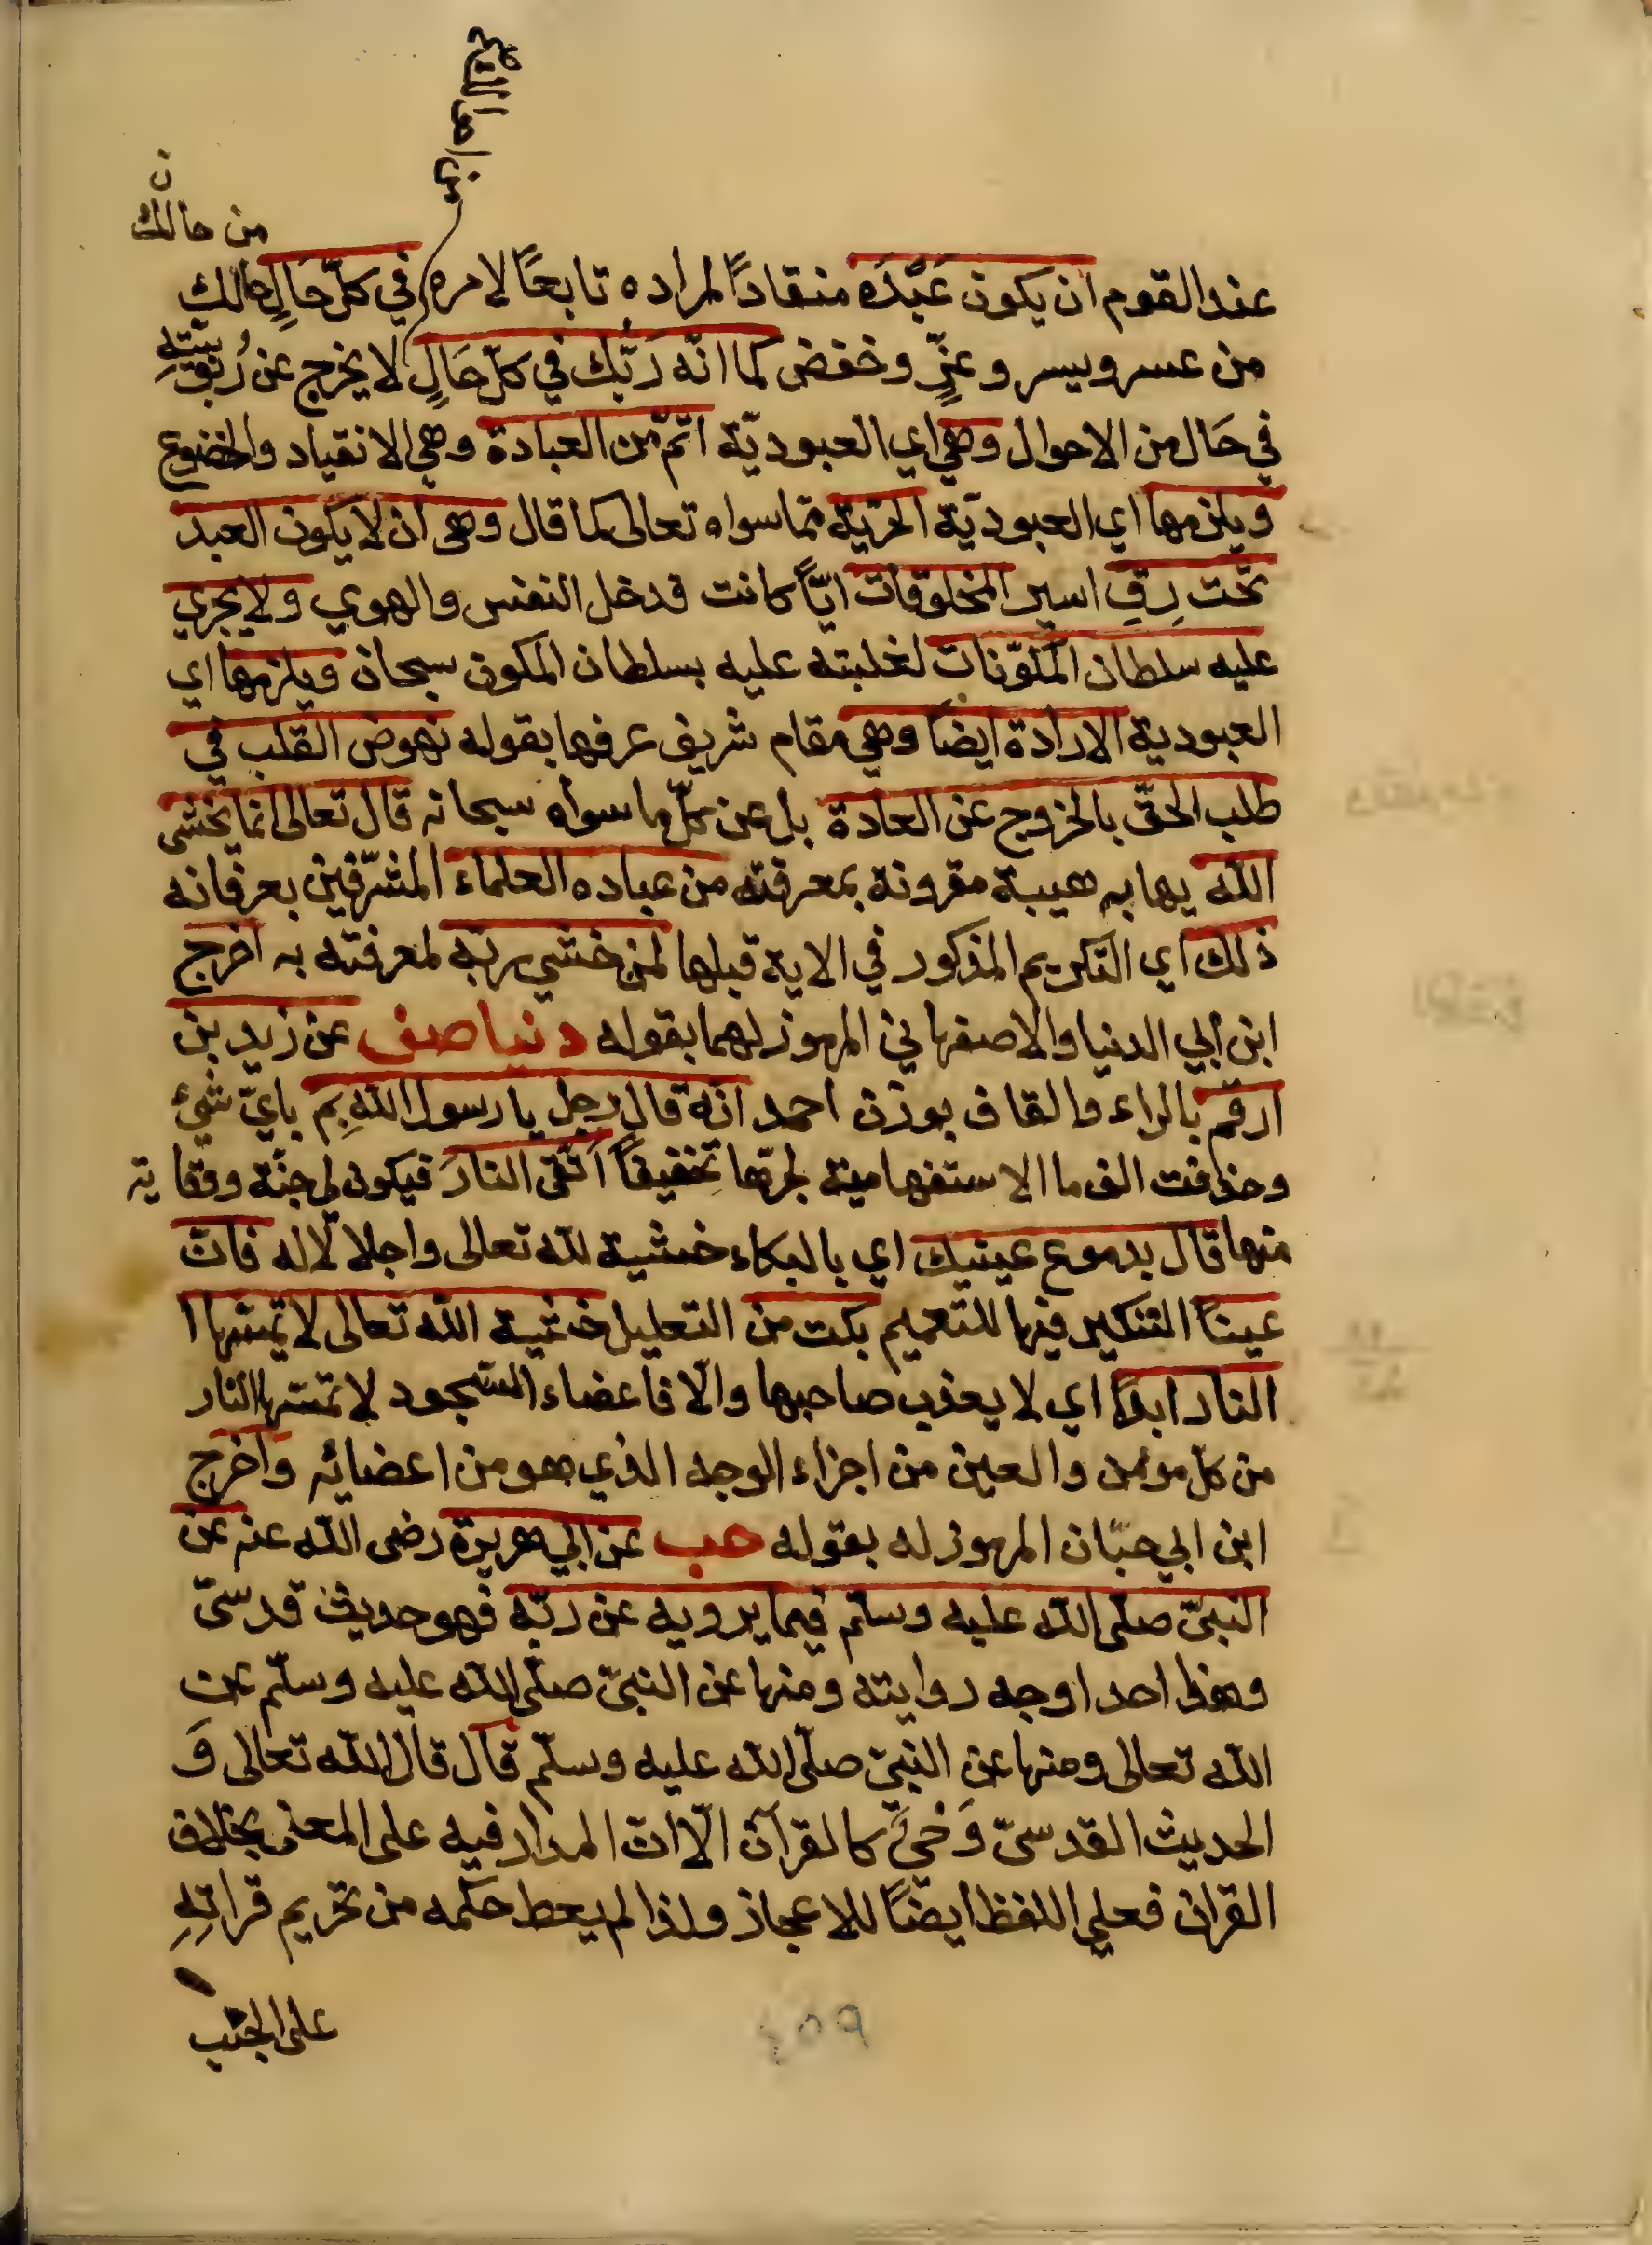 من حالك
ن
عند القوم ان يكون عَبْدَه منقاداً لمراده تابعًا لامره في كلّ حَالٍ حالك
من عسر ويسر وعزٍّ وخفض كما انّه رَبّك في كلّ حَالٍ لا يخرج عن رُبوبيّتهِ
في حَال من الاحوال وهي اي العبوديّة اتمّ من العبادة وهي الانقياد والخضوع
ويلزمها اي العبوديّة الحرّية ممّا سواه تعالى كما قال وهي ان لا يكون العبد
تحت رِقِ اسير المخلوقات ايّاً كانت فدخل النفس والهوي ولا يجري
عليه سلطان المكوّنات لغلبته عليه بسلطان المكون سبحان ويلزمها اي
العبودية الارادة ايضاً وهي مقام شريف عرفها بقوله نهوض القلب في
طلب الحقّ بالخروج عن العادة بل عن كلّ ما سواه سبحانه قال تعالى انما يخشى
الله يهابه هيبة مقرونة بمعرفته من عباده العلماء المشرّفين بعرفانه
ذلك اي التكريم المذكور في الاية قبلها لمن خشي ربّه لمعرفته به اخرج
ابن ابي الدنيا والاصفهاني المرموز لهما بقوله دنيا صف عن زيد بن
ارقم بالراء والقاف بوزن احمد انّه قال رجل يا رسول الله بِم بايّ شئ
وحذفت الف ما الاستفهامية لجرّها تخفيفاً اَتقى النارَ فيكون لي جنّة ووقاية
منها قال بدموع عينيك اي بالبكاء خشية لله تعالى واجلالاً له فانّ
عيناً التنكير فيها للتعميم بكت من التعليل خشية الله تعالى لا تمسّها
النار ابداً اي لا يعذب صاحبها والّا فاعضاء السّجود لا تمسّها النار
من كلّ مومن والعين من اجزاء الوجه الذي هو من اعضائه واخرج
ابن ابي حبّان المرموز له بقوله حب عن ابي هريرة رضى الله عنه عن
النبيّ صلّى الله عليه وسلّم فيما يرويه عن ربّه فهو حديث قدسىّ
وهذا احد اوجه روايته ومنها عن النبيّ صلّى الله عليه وسلّم عن
الله تعالى ومنها عن النبيّ صلّى الله عليه وسلّم قال قال الله تعالى وَ
الحديث القدسيّ وَحْيٌ كالقرآن الّا انّ المدار فيه على المعنى بخلاف
القران فعلي اللفظ ايضًا للاعجاز ولذا لم يعط حكمه من تحريم قراتِهِ
على الجنب
٤٥٩